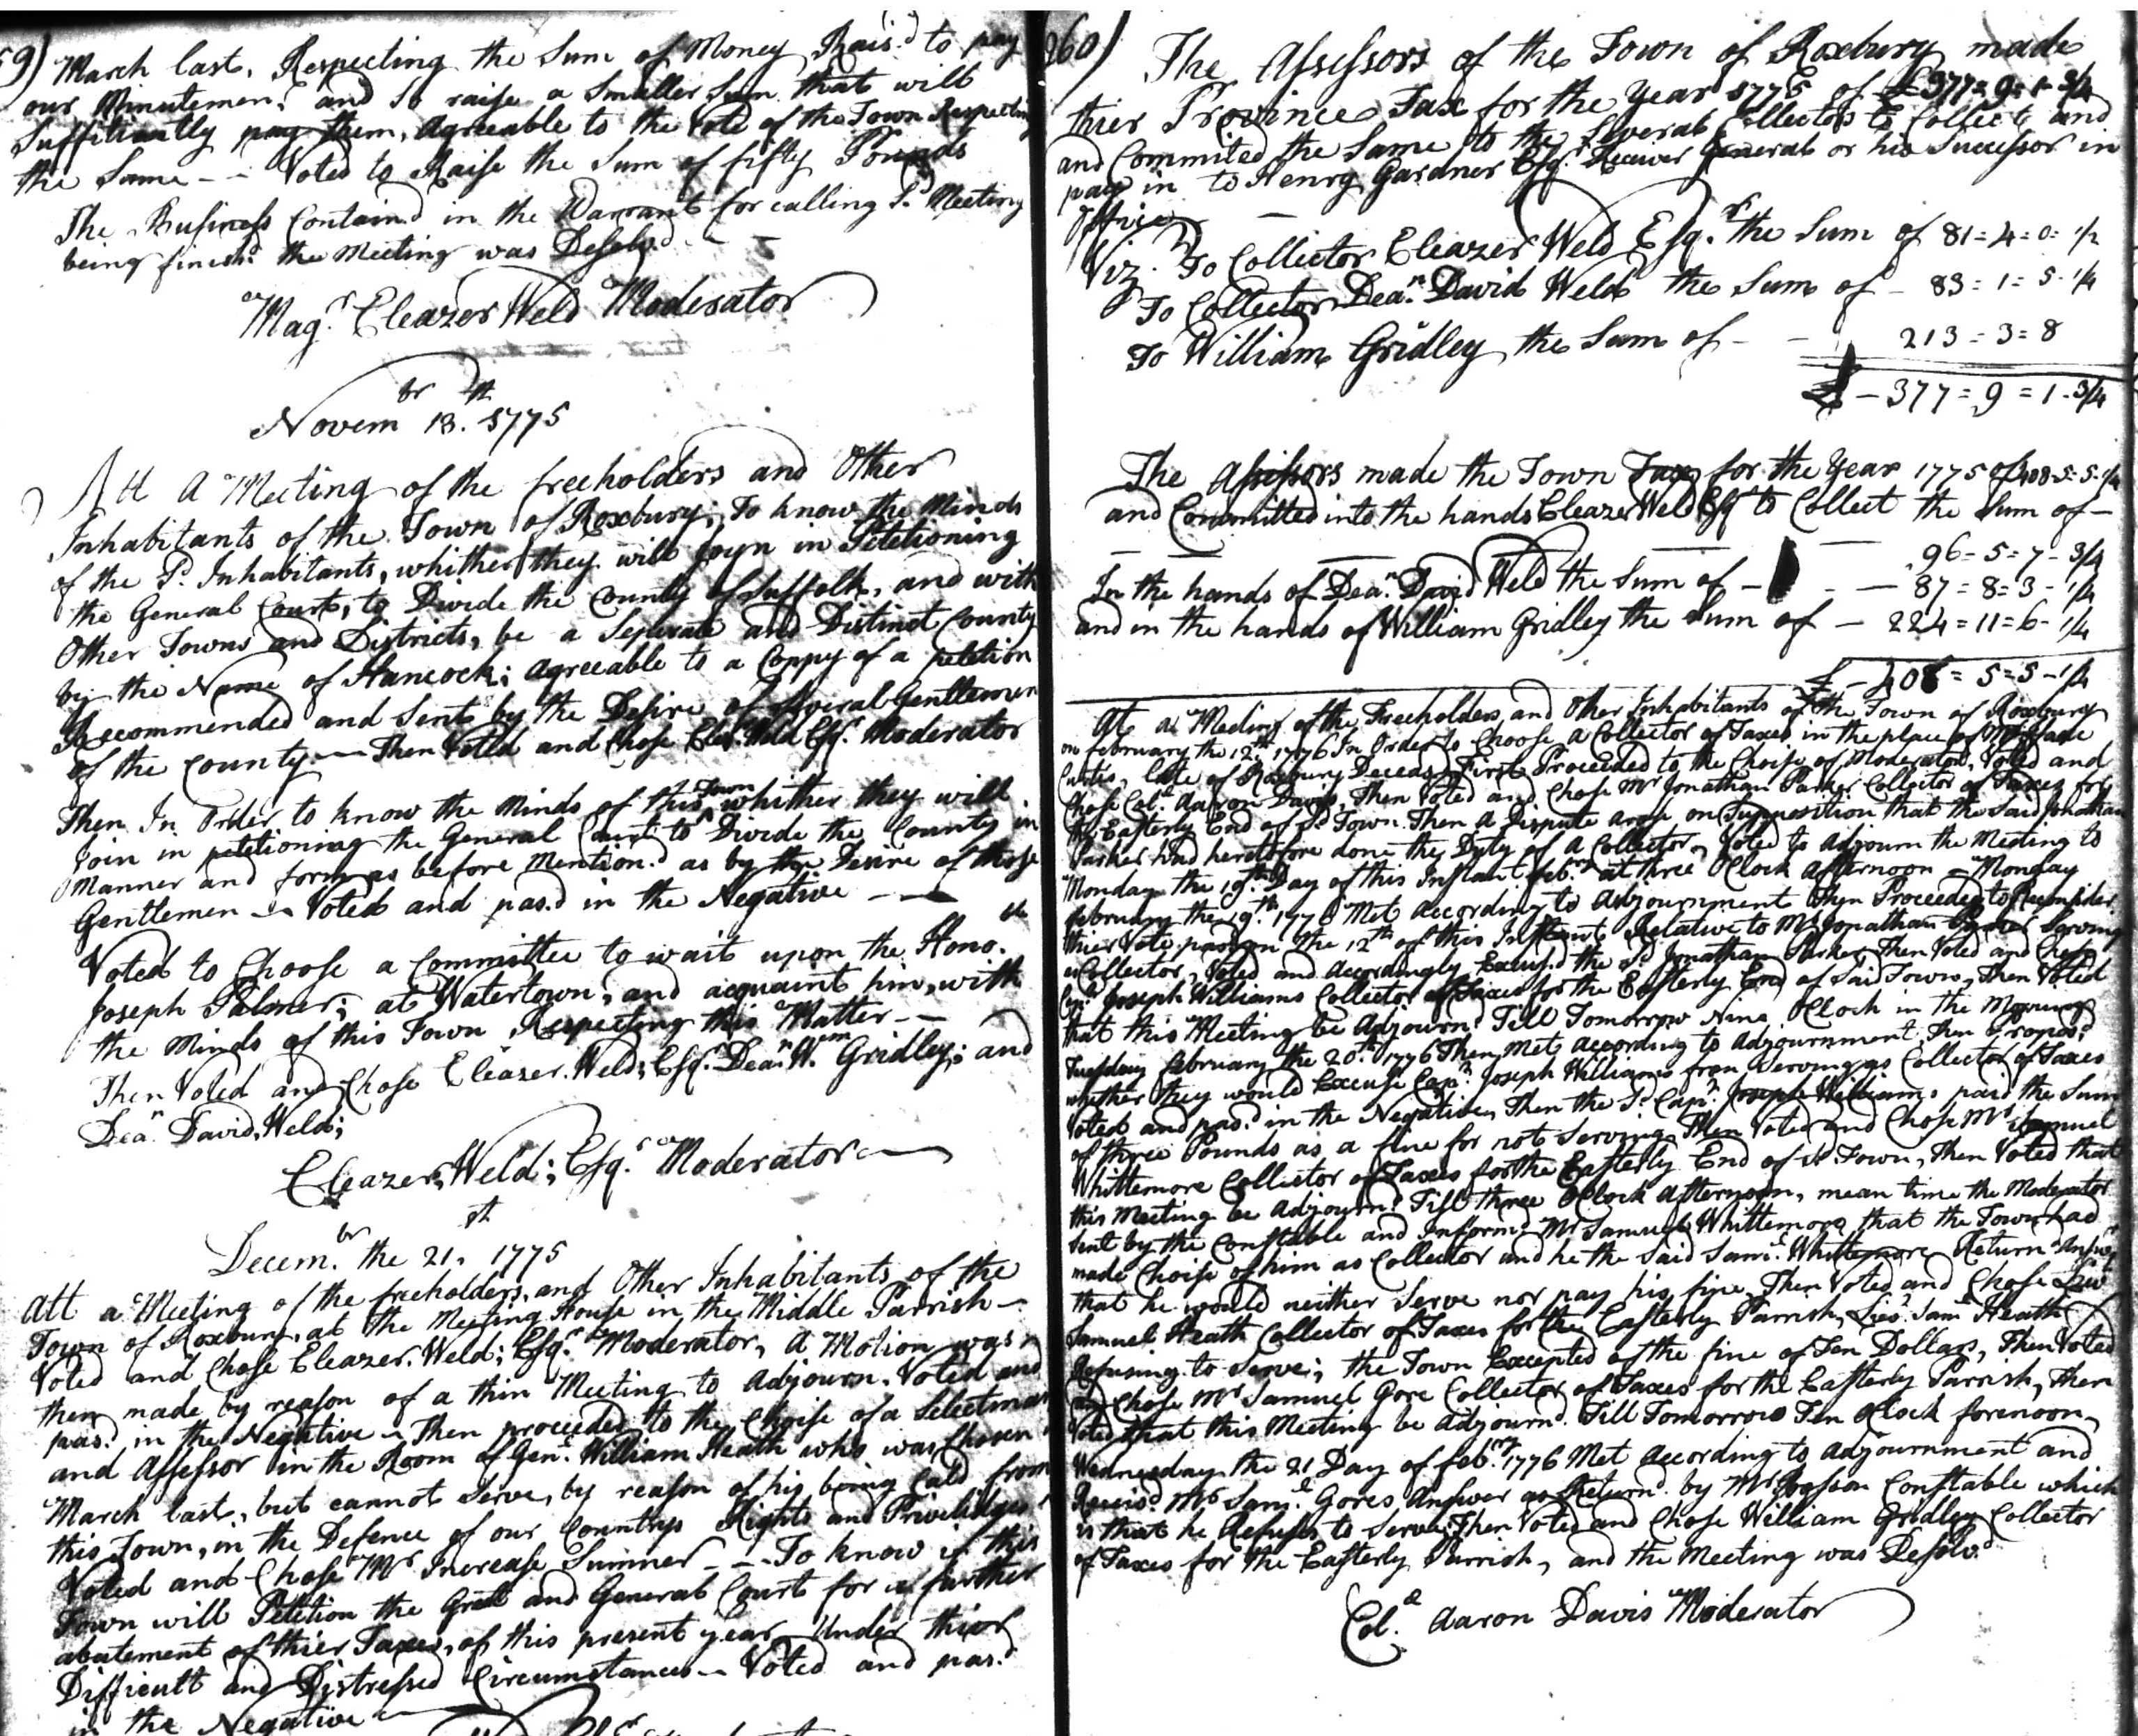 59) March last, Respecting the Sum of Money Rais.d to pay
our Minutemen, and to raise a Smaller Sum that will
Suffitiantly pay them, agreeable to the Vote of the Town Respecting
the Same - - Voted to Raise the Sum of fifty Pounds
The Business Contain.d in the Warrant for calling S.d Meeting
being finish.d the Meeting was Desolv.d - -
Mag.r Eleazer Weld Moderator
Novem.br 13.th 1775
Att A Meeting of the freeholders and Other
Inhabitants of the Town of Roxbury; To know the Minds
of the S.d Inhabitants, whither they will Joyn in Petetioning
the General Court, to Divide the County of Suffolk, and with
Other Towns and Districts, be a Seperate and Distinct County
by the Name of Hancock; agreeable to a Coppy of a petetion
Recommended and Sent by the Desire of Several Gentlemen
of the County - Then Voted and Chose Elea.r Weld Esq.r Moderator
Then In Order to know the Minds of this Town whither they will
Join in petetioning the General Court to Divide the County in
Manner and form as before Mention.d as by the Desire of those
Gentlemen - Voted and pas.d in the Negative - -
Voted to Choose a Committee to wait upon the Hono.ble
Joseph Palmer; at Watertown, and acquaint him, with
the Minds of this Town Respecting this Matter - -
Then Voted and Chose Eleazer Weld; Esq.r Dea.n W.m Gridley; and
Dea.n David Weld;
Eleazer Weld; Esq.r Moderator
Decem.br the 21.st 1775
Att a Meeting of the freeholders, and Other Inhabitants of the
Town of Roxbury, at the Meeting House in the Middle Parrish -
Voted and Chose Eleazer Weld; Esq.r Moderator, A Motion was
then made by reason of a thin Meeting to Adjourn. Voted and
pas.d in the Negative - Then proceeded to the Choise of a Selectman
and Assessor in the Room of Gen.l William Heath who was Chosen
March last, but cannot Serve, by reason of his being Cald from
this Town, in the Defence of our Countrys Rights and Priviledges
Voted and Chose Mr Increase Sumner - - To know if this
Town will Petetion the Great and General Court for a further
abatement of thier Taxes, of this present year Under thier
Difficult and Distressed Circumstances - Voted and pas.d
in the Negative
260) The Assessors of the Town of Roxbury made
thier Province Tax for the Year 1775 of £377=9=1-3/4
and Commited the Same to the Several Collectors to Collect and
pay in to Henry Gardner Esq.r Receiver General or his Successor in
Office -
Viz. To Collector Eleazer Weld Esq.r the Sum of 81=4=0=1/2
To Collector Dea.n David Weld the Sum of - 83=1=5-1/4
To William Gridley the Sum of - - 213=3=8
£-377=9=1-3/4
The Assessors made the Town Tax for the Year 1775 of 408-5-5-1/4
and Committed into the hands Eleazer Weld Esq.r to Collect the Sum of -
96-5=7-3/4
In the hands of Dea.n David Weld the Sum of - - 87=8=3-1/4
and in the hands of William Gridley the Sum of - 224=11=6-1/4
£-408=5=5-1/4
At a Meeting of the Freeholders and Other Inhabitants of the Town of Roxbury
on February the 12.th 1776 In Order to Choose a Collector of Taxes in the place of Mr Isaac
Curtis, late of Roxbury Deceas.d First Proceeded to the Choise of Moderator, Voted and
Chose Col.l Aaron Davis, Then Voted and Chose Mr Jonathan Parker Collector of Taxes for
the Easterly End of S.d Town. Then a Dispute arose on Supposition that the Said Jonathan
Parker had heretofore done the Duty of a Collector, Voted to Adjourn the Meeting to
Monday the 19.th Day of this Instant Feb.ry at three OClock Afternoon - Monday
February the 19.th 1776 Met According to Adjournment Then Proceeded to Reconsider
thier Vote pas.d on the 12th of this Instant Relative to Mr Jonathan Parker Serving
as Collector, Voted and Accordingly Excus.d the S.d Jonathan Parker, Then Voted and Chose
Cap.n Joseph Williams Collector of Taxes for the Easterly End of Said Town, Then Voted
that this Meeting be Adjourn.d Till Tomorrow Nine OClock in the Morning
Tuesday February the 20.th 1776 Then Met According to Adjournment, Then Propos.d
whither they would Excuse Cap.n Joseph Williams from Serving as Collector of Taxes
Voted and pas.d in the Negative, Then the S.d Cap.n Joseph Williams paid the Sum
of three Pounds as a fine for not Serving. Then Voted and Chose Mr Samuel
Whittemore Collector of Taxes for the Easterly End of S.d Town, Then Voted that
this Meeting be Adjourn.d Till three OClock Afternoon, mean time the Moderator
Sent by the Constable and Inform.d Mr Samuel Whittemore that the Town had
made Choise of him as Collector and he the Said Sam.l Whittemore Return.d Answer
that he would neither Serve nor pay his fine, Then Voted and Chose Liu.t
Samuel Heath Collector of Taxes for the Easterly Parrish, Lieu.t Sam.l Heath
Refusing to Serve; the Town Excepted of the fine of Ten Dollars, Then Voted
and Chose Mr Samuel Gore Collector of Taxes for the Easterly Parrish, Then
Voted that this Meeting be Adjourn.d Till Tomorrow Ten OClock forenoon,
Wednesday the 21 Day of Feb.ry 1776 Met According to Adjournment and
Receiv.d Mr Sam.l Gores Answer as Return.d by Mr Constable which
is that he Refuses to Serve, Then Voted and Chose William Gridley Collector
of Taxes for the Easterly Parrish, and the Meeting was Desolv.d
Col.l Aaron Davis Moderator